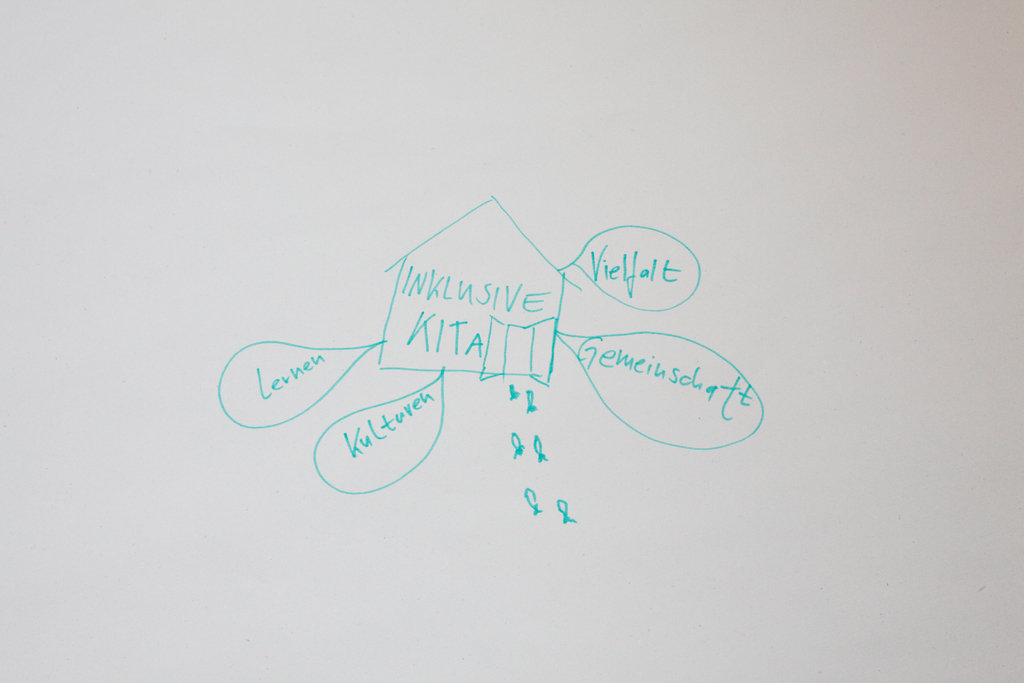 INKLUSIVE
KITA
Vielfalt
Gemeinschaft
Lernen
Kulturen